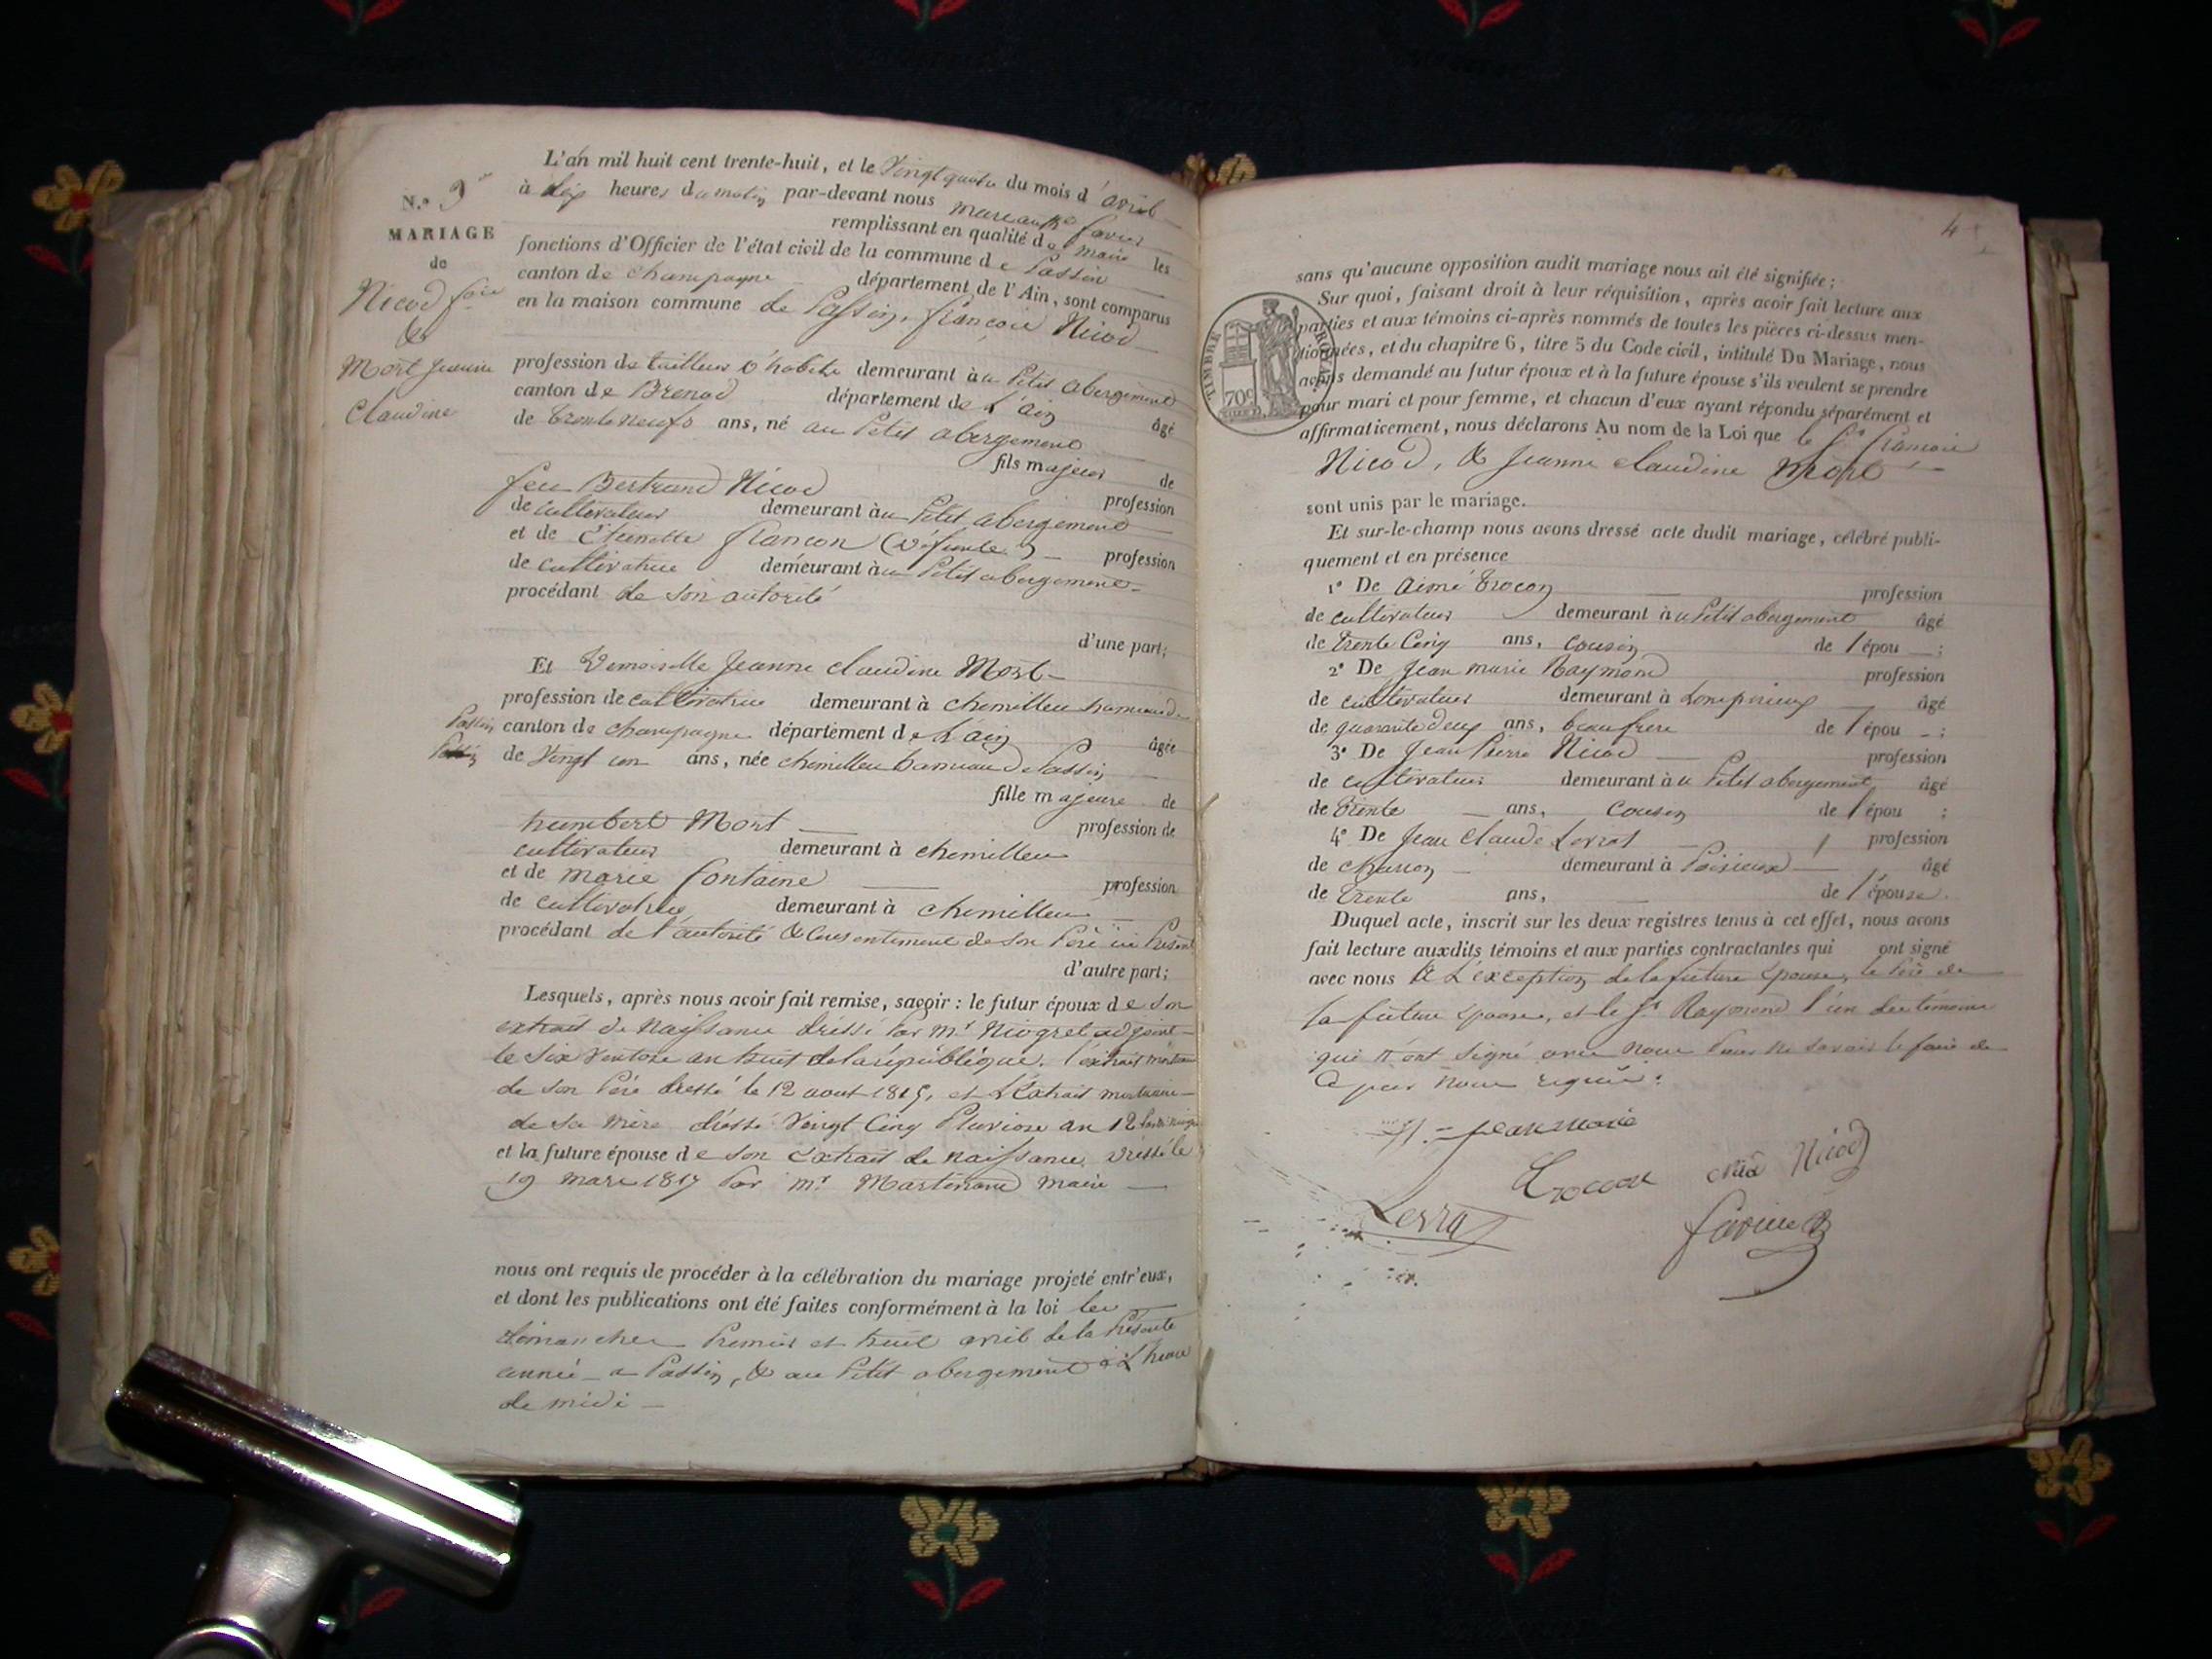 N.o 3
MARIAGE
de
Nicod fois
&
Mort Jeanne
Claudine
L'an mil huit cent trente-huit, et le Vingt quatre du mois d'avril
à dix heures du matin par-devant nous
remplissant en qualité de maire les
fonctions d'Officier de l'état civil de la commune de Passin
canton de champagne département de l'Ain, sont comparus
en la maison commune de Passin, françois Nicod
profession de tailleur d'habits demeurant à u Petit abergement
canton de Brenod département de L'ain âgé
de trente neufs ans, né au Petit abergement
fils majeur de
feu Bertrand Nicod profession
de cultivateur demeurant à u Petit abergement
et de françon (défunte) profession
de cultivatrice demeurant à u Petit abergement
procédant de son autorité
d'une part;
Et Demoiselle Jeanne claudine Mort
profession de cultivatrice demeurant à chemilleu hameau de
Passin canton de champagne département de L'ain âgée
de Vingt un ans, née chemilleu hameau de Passin
fille majeure de
humbert Mort profession de
cultivateur demeurant à chemilleu
et de marie fontaine profession
de cultivatrice demeurant à chemilleu
procédant de l'autorité & consentement de son Père ici Présent
d'autre part;
Lesquels, après nous avoir fait remise, savoir : le futur époux de son
extrait de Naissance dressé Par mr Niogret adjoint
le six Ventose an huit de la république, l'extrait mortuaire
de son Père dressé le 12 aout 1815, et L'Extrait mortuaire
de sa mère dressé Vingt Cinq Pluviose an 12
et la future épouse de son Extrait de naissance dressé le
19 mars 1817 Par mr Martinand maire
nous ont requis de procéder à la célébration du mariage projeté entr'eux,
et dont les publications ont été faites conformément à la loi les
dimanches Premier et huit avril de la Présente
année a Passin, & au Petit abergement à L'heure
de midi
4
TIMBRE ROYAL
70c
sans qu'aucune opposition audit mariage nous ait été signifiée;
Sur quoi, faisant droit à leur réquisition, après avoir fait lecture aux
parties et aux témoins ci-après nommés de toutes les pièces ci-dessus men-
tionnées, et du chapitre 6, titre 5 du Code civil, intitulé Du Mariage, nous
avons demandé au futur époux et à la future épouse s'ils veulent se prendre
pour mari et pour femme, et chacun d'eux ayant répondu séparément et
affirmativement, nous déclarons Au nom de la Loi que le Sr françois
Nicod, & Jeanne claudine Mort
sont unis par le mariage.
Et sur-le-champ nous avons dressé acte dudit mariage, célébré publi-
quement et en présence
1o De Aimé Trocon profession
de cultivateur demeurant à u Petit abergement âgé
de trente Cinq ans, cousin de l'épou ;
2o De Jean marie Raymond profession
de cultivateur demeurant à Lompnieux âgé
de quarante deux ans, beaufrère de l'épou ;
3o De Jean Pierre Nicod profession
de cultivateur demeurant à u Petit abergement âgé
de trente ans, Cousin de l'épou ;
4o De Jean Claude Lerrat profession
de charron demeurant à Poisieux âgé
de trente ans, de l'épouse.
Duquel acte, inscrit sur les deux registres tenus à cet effet, nous avons
fait lecture auxdits témoins et aux parties contractantes qui ont signé
avec nous à L'exception de la future épouse, le Père de
la future épouse, et le Sr Raymond l'un des témoins
qui n'ont signé avec nous Pour ne savoir le faire de
ce par nous requis.
Jean marie
Trocon Nicod
Lerrat
favier